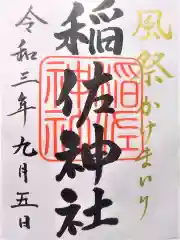 風祭 かけまいり
稲佐神社
稲佐
神社
令和三年九月五日